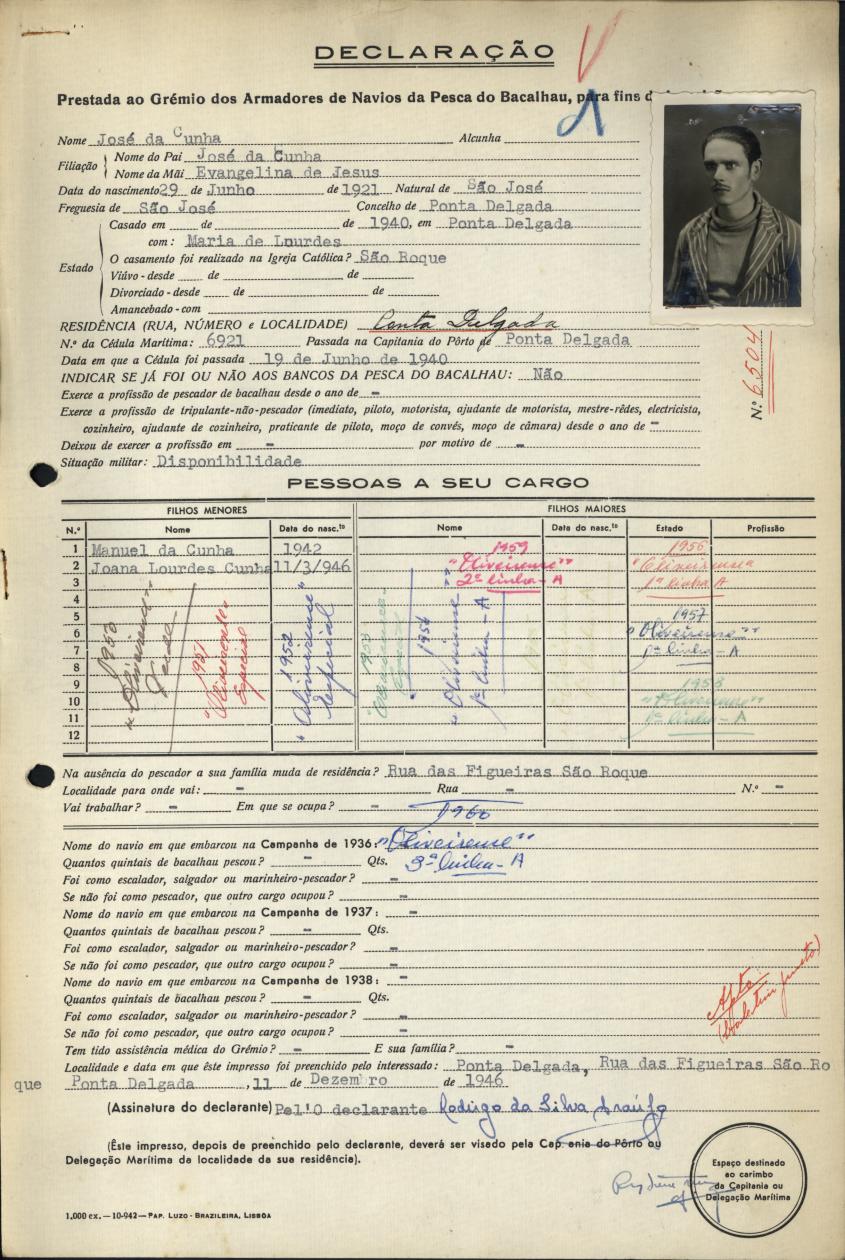 DECLARAÇÃO
Prestada ao Grémio dos Armadores de Navios da Pesca do Bacalhau, para fins
Nome José da Cunha Alcunha
Filiação Nome do Pai José da Cunha
Nome da Mãi Evangelina de Jesus
Data do nascimento 29 de Junho de 1921 Natural de São José
Freguesia de São José Concelho de Ponta Delgada
Casado em de de 1940, em Ponta Delgada
com: Maria de Lourdes
O casamento foi realizado na Igreja Católica? São Roque
Estado
Viúvo - desde de de
Divorciado - desde de de
Amancebado - com
RESIDÊNCIA (RUA, NÚMERO e LOCALIDADE) Ponta Delgada
N.º da Cédula Marítima: 6921 Passada na Capitania do Pôrto de Ponta Delgada
Data em que a Cédula foi passada 19 de Junho de 1940
N.º 6504
INDICAR SE JÁ FOI OU NÃO AOS BANCOS DA PESCA DO BACALHAU: Não
Exerce a profissão de pescador de bacalhau desde o ano de -
Exerce a profissão de tripulante-não-pescador (imediato, piloto, motorista, ajudante de motorista, mestre-rêdes, electricista,
cozinheiro, ajudante de cozinheiro, praticante de piloto, moço de convés, moço de câmara) desde o ano de -
Deixou de exercer a profissão em - por motivo de -
Situação militar: Disponibilidade
PESSOAS A SEU CARGO
FILHOS MENORES FILHOS MAIORES
N.º Nome Data do nasc.to Nome Data do nasc.to Estado Profissão
1 Manuel da Cunha 1942
2 Joana Lourdes Cunha 11/3/946
3
4
5
6
7
8
9
10
11
12
1950
"Oliveirense"
1951
"Oliveirense"
Especial
1952
"Oliveirense"
Especial
1953
1954
"Oliveirense"
1ª linha - A
1959
"Oliveirense"
2ª linha - A
1956
"Oliveirense"
1ª linha A
1957
"Oliveirense"
1ª linha - A
1958
"Oliveirense"
1ª linha - A
Na ausência do pescador a sua família muda de residência? Rua das Figueiras São Roque
Localidade para onde vai: - Rua - N.º -
Vai trabalhar? - Em que se ocupa? -
1960
Nome do navio em que embarcou na Campanha de 1936: "Oliveirense"
Quantos quintais de bacalhau pescou? - Qts. 3ª linha - A
Foi como escalador, salgador ou marinheiro-pescador? -
Se não foi como pescador, que outro cargo ocupou? -
Nome do navio em que embarcou na Campanha de 1937: -
Quantos quintais de bacalhau pescou? - Qts.
Foi como escalador, salgador ou marinheiro-pescador? -
Se não foi como pescador, que outro cargo ocupou? -
Nome do navio em que embarcou na Campanha de 1938: -
Quantos quintais de bacalhau pescou? - Qts.
Foi como escalador, salgador ou marinheiro-pescador? -
Se não foi como pescador, que outro cargo ocupou? -
Apto
(Boletim junto)
Tem tido assistência médica do Grémio? - E sua família? -
Localidade e data em que êste impresso foi preenchido pelo interessado: Ponta Delgada, Rua das Figueiras São Ro
que Ponta Delgada, 11 de Dezembro de 1946
(Assinatura do declarante) Pel'O declarante Rodrigo da Silva Araújo
(Êste impresso, depois de preenchido pelo declarante, deverá ser visado pela Capitania do Pôrto ou
Delegação Marítima da localidade da sua residência).
Espaço destinado
ao carimbo
da Capitania ou
Delegação Marítima
1,000 ex. — 10-942 — PAP. LUZO-BRAZILEIRA, LISBOA